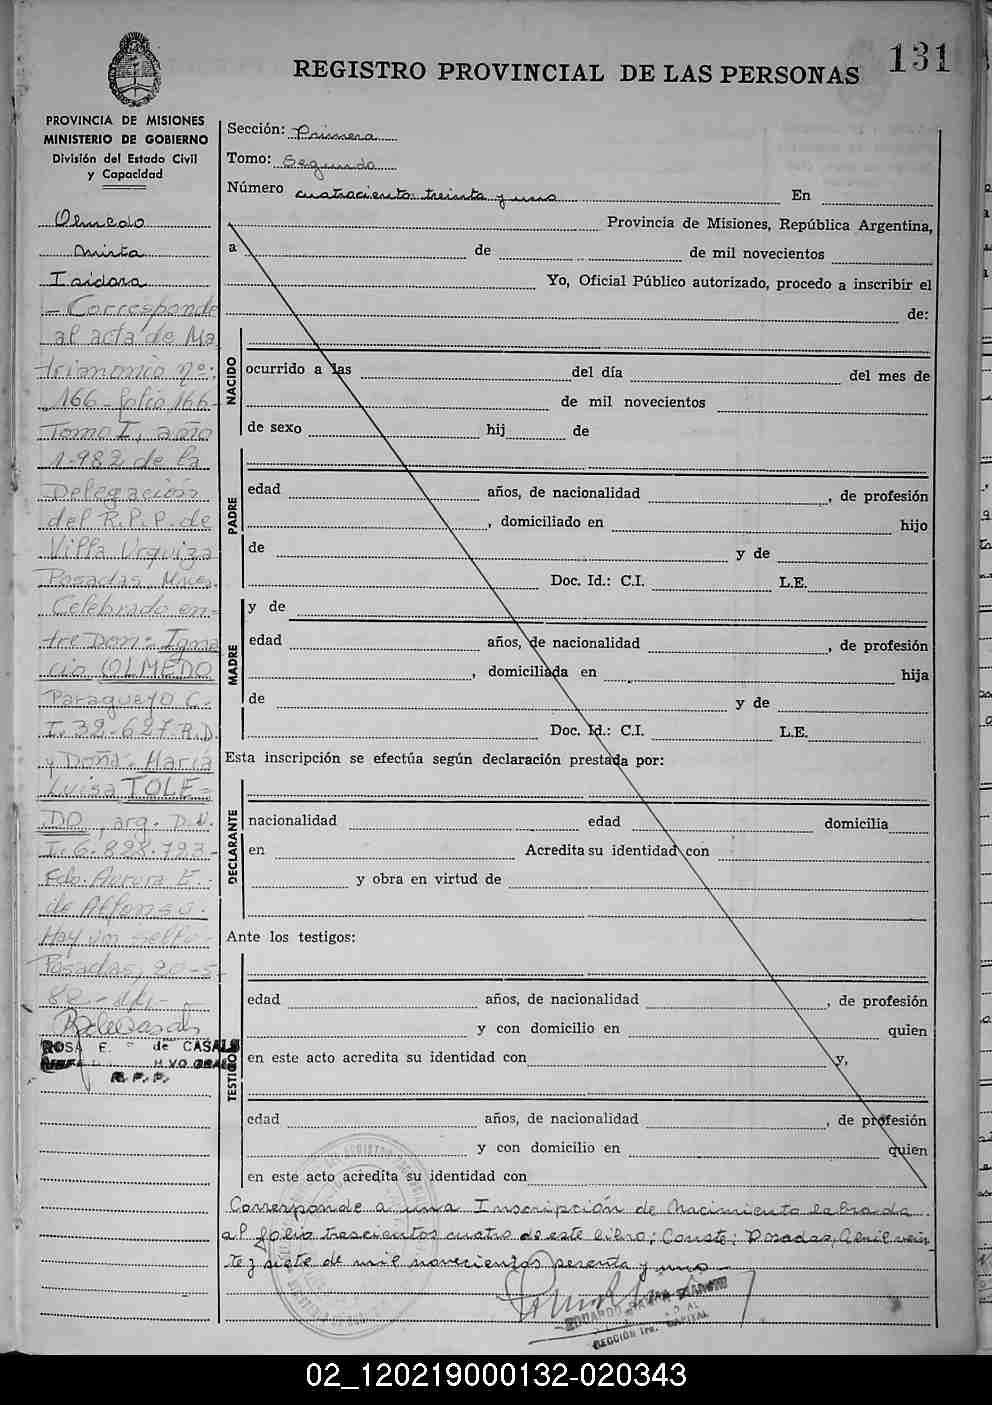 131
REGISTRO PROVINCIAL DE LAS PERSONAS
PROVINCIA DE MISIONES
MINISTERIO DE GOBIERNO
División del Estado Civil
y Capacidad
Olmedo
Mirta
Isidora
- Corresponde
al acta de Ma
trimonio nº:
166 - folio 166-
Tomo I, año
1.982 de la
Delegación
del R.P.P. de
Villa Urquiza
Posadas, Mnes.
Celebrado en-
tre Don: Igna
cio OLMEDO
Paraguayo C.
I. 32-627-R.D.
y Doña: María
Luisa TOLE=
DO, arg. D.N.
I. 6.828.723-
Fdo. Aurora E.
de Alfonso.
Hay un sello.
Posadas, 20-5-
82-
ROSA E. de CASALS
R.P.P.
Sección: Primera
Tomo: Segundo
Número cuatrociento treinta y uno En
Provincia de Misiones, República Argentina,
a de de mil novecientos
Yo, Oficial Público autorizado, procedo a inscribir el
de:
NACIDO
ocurrido a las del día del mes de
de mil novecientos
de sexo hij de
PADRE
edad años, de nacionalidad , de profesión
, domiciliado en hijo
de y de
Doc. Id.: C.I. L.E.
MADRE
y de
edad años, de nacionalidad , de profesión
, domiciliada en hija
de y de
Doc. Id.: C.I. L.E.
Esta inscripción se efectúa según declaración prestada por:
DECLARANTE
nacionalidad edad domicilia
en Acredita su identidad con
y obra en virtud de
Ante los testigos:
TESTIGOS
edad años, de nacionalidad , de profesión
y con domicilio en quien
en este acto acredita su identidad con y,
edad años, de nacionalidad , de profesión
y con domicilio en quien
en este acto acredita su identidad con
Corresponde a una Inscripción de Nacimiento labrada
al folio trescientos cuatro de este libro; Conste: Posadas, Abril vein
te y siete de mil novecientos sesenta y uno
SECCIÓN 1ra. CAPITAL
02_120219000132-020343